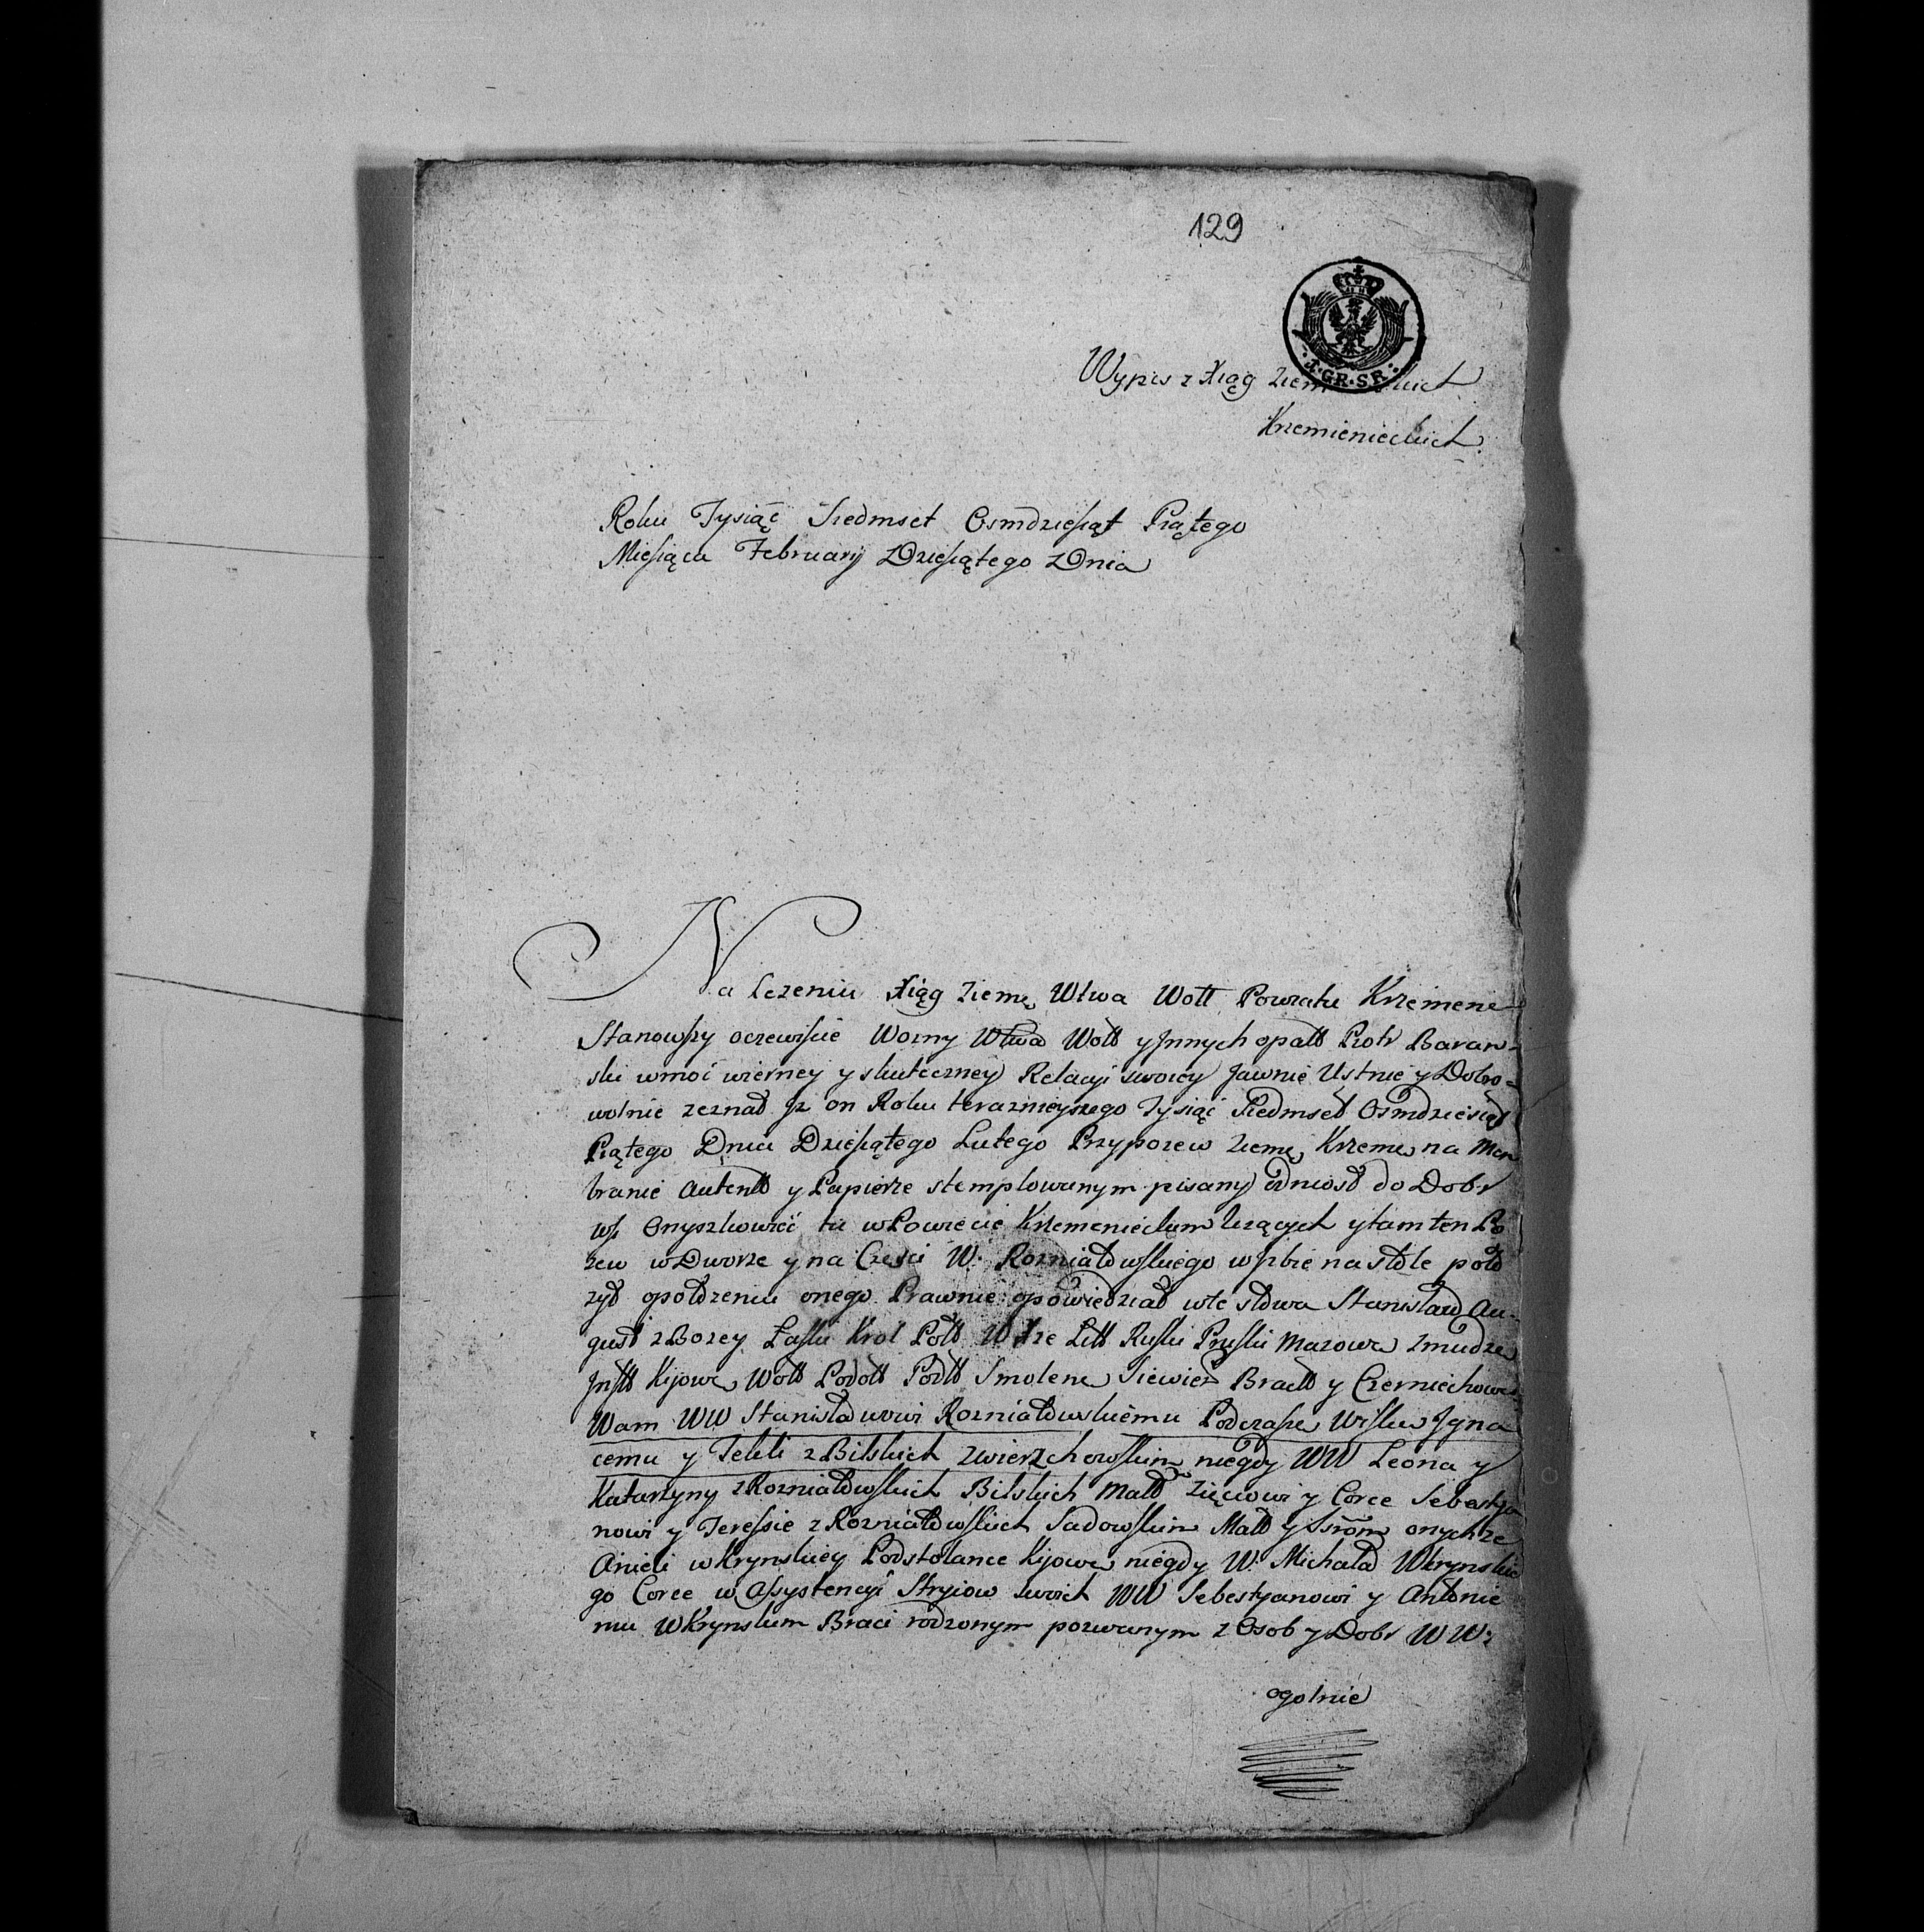 129
1·GR·SR·
Wypis z Xiąg Ziem
Krzemienieckich
Roku Tysiąc Siedmset Osmdziesiąt Piątego
Miesiąca February Dziesiątego Dnia
Na leżeniu Xiąg Ziem Wtwa Wołł Powiatu Krzemene
Stanowszy oczewiscie Wozny Wtwa Wołł y Jnnych opałł Piotr Baraw-
ski w moć wierney y skuteczney Relacyi swoiey Jawnie Ustnie y Dobro-
wolnie zeznał Jz on Roku terazniejszego Tysiąć Siedmset Osmdziesiąt
Piątego Dnia Dziesiątego Lutego Przypozew Ziem Krzeme na Mem
branie Autentt y Papierze stemplowanym pisany odniosł do Dobr
wsi Onyszkowicć tu w Powiecie Krzemenieckim lezących y tam ten Po
zew w Dworze y na Części W. Rozniatowskiego w Jzbie na stole poło
zył o połozeniu onego Prawnie opowiedział w te słowa Stanisław Au-
gust z Bozey Łaski Krol Polł W Xze Litt Ruski Pruski Mazowe Zmudze
Jnfłł Kijowe Wołł Podoll Podłł Smolene Siewier y Czerniechowe
Wam WW Stanisławowi Rozniatowskiemu Podczasze Wiske Jgna
cemu y Tekli z Bilskich Zwierzchowskim niegdy WW Leona y
Katarzyny z Rozniatowskich Bilskich Małł Zięciowi y Corce Sebestya
nowi y Teressie z Rozniatowskich Sadowskim Małł y onychze
Anieli wKrynskiey Podstolance Kijowe niegdy W. Michała Wkrynskie
go Corce w Assystencyi Stryiow swoich WW Sebestyanowi y Antonie
mu WKrynskim Braci rodzonym pozwanym z Osob y Dobr WW:
ogolnie